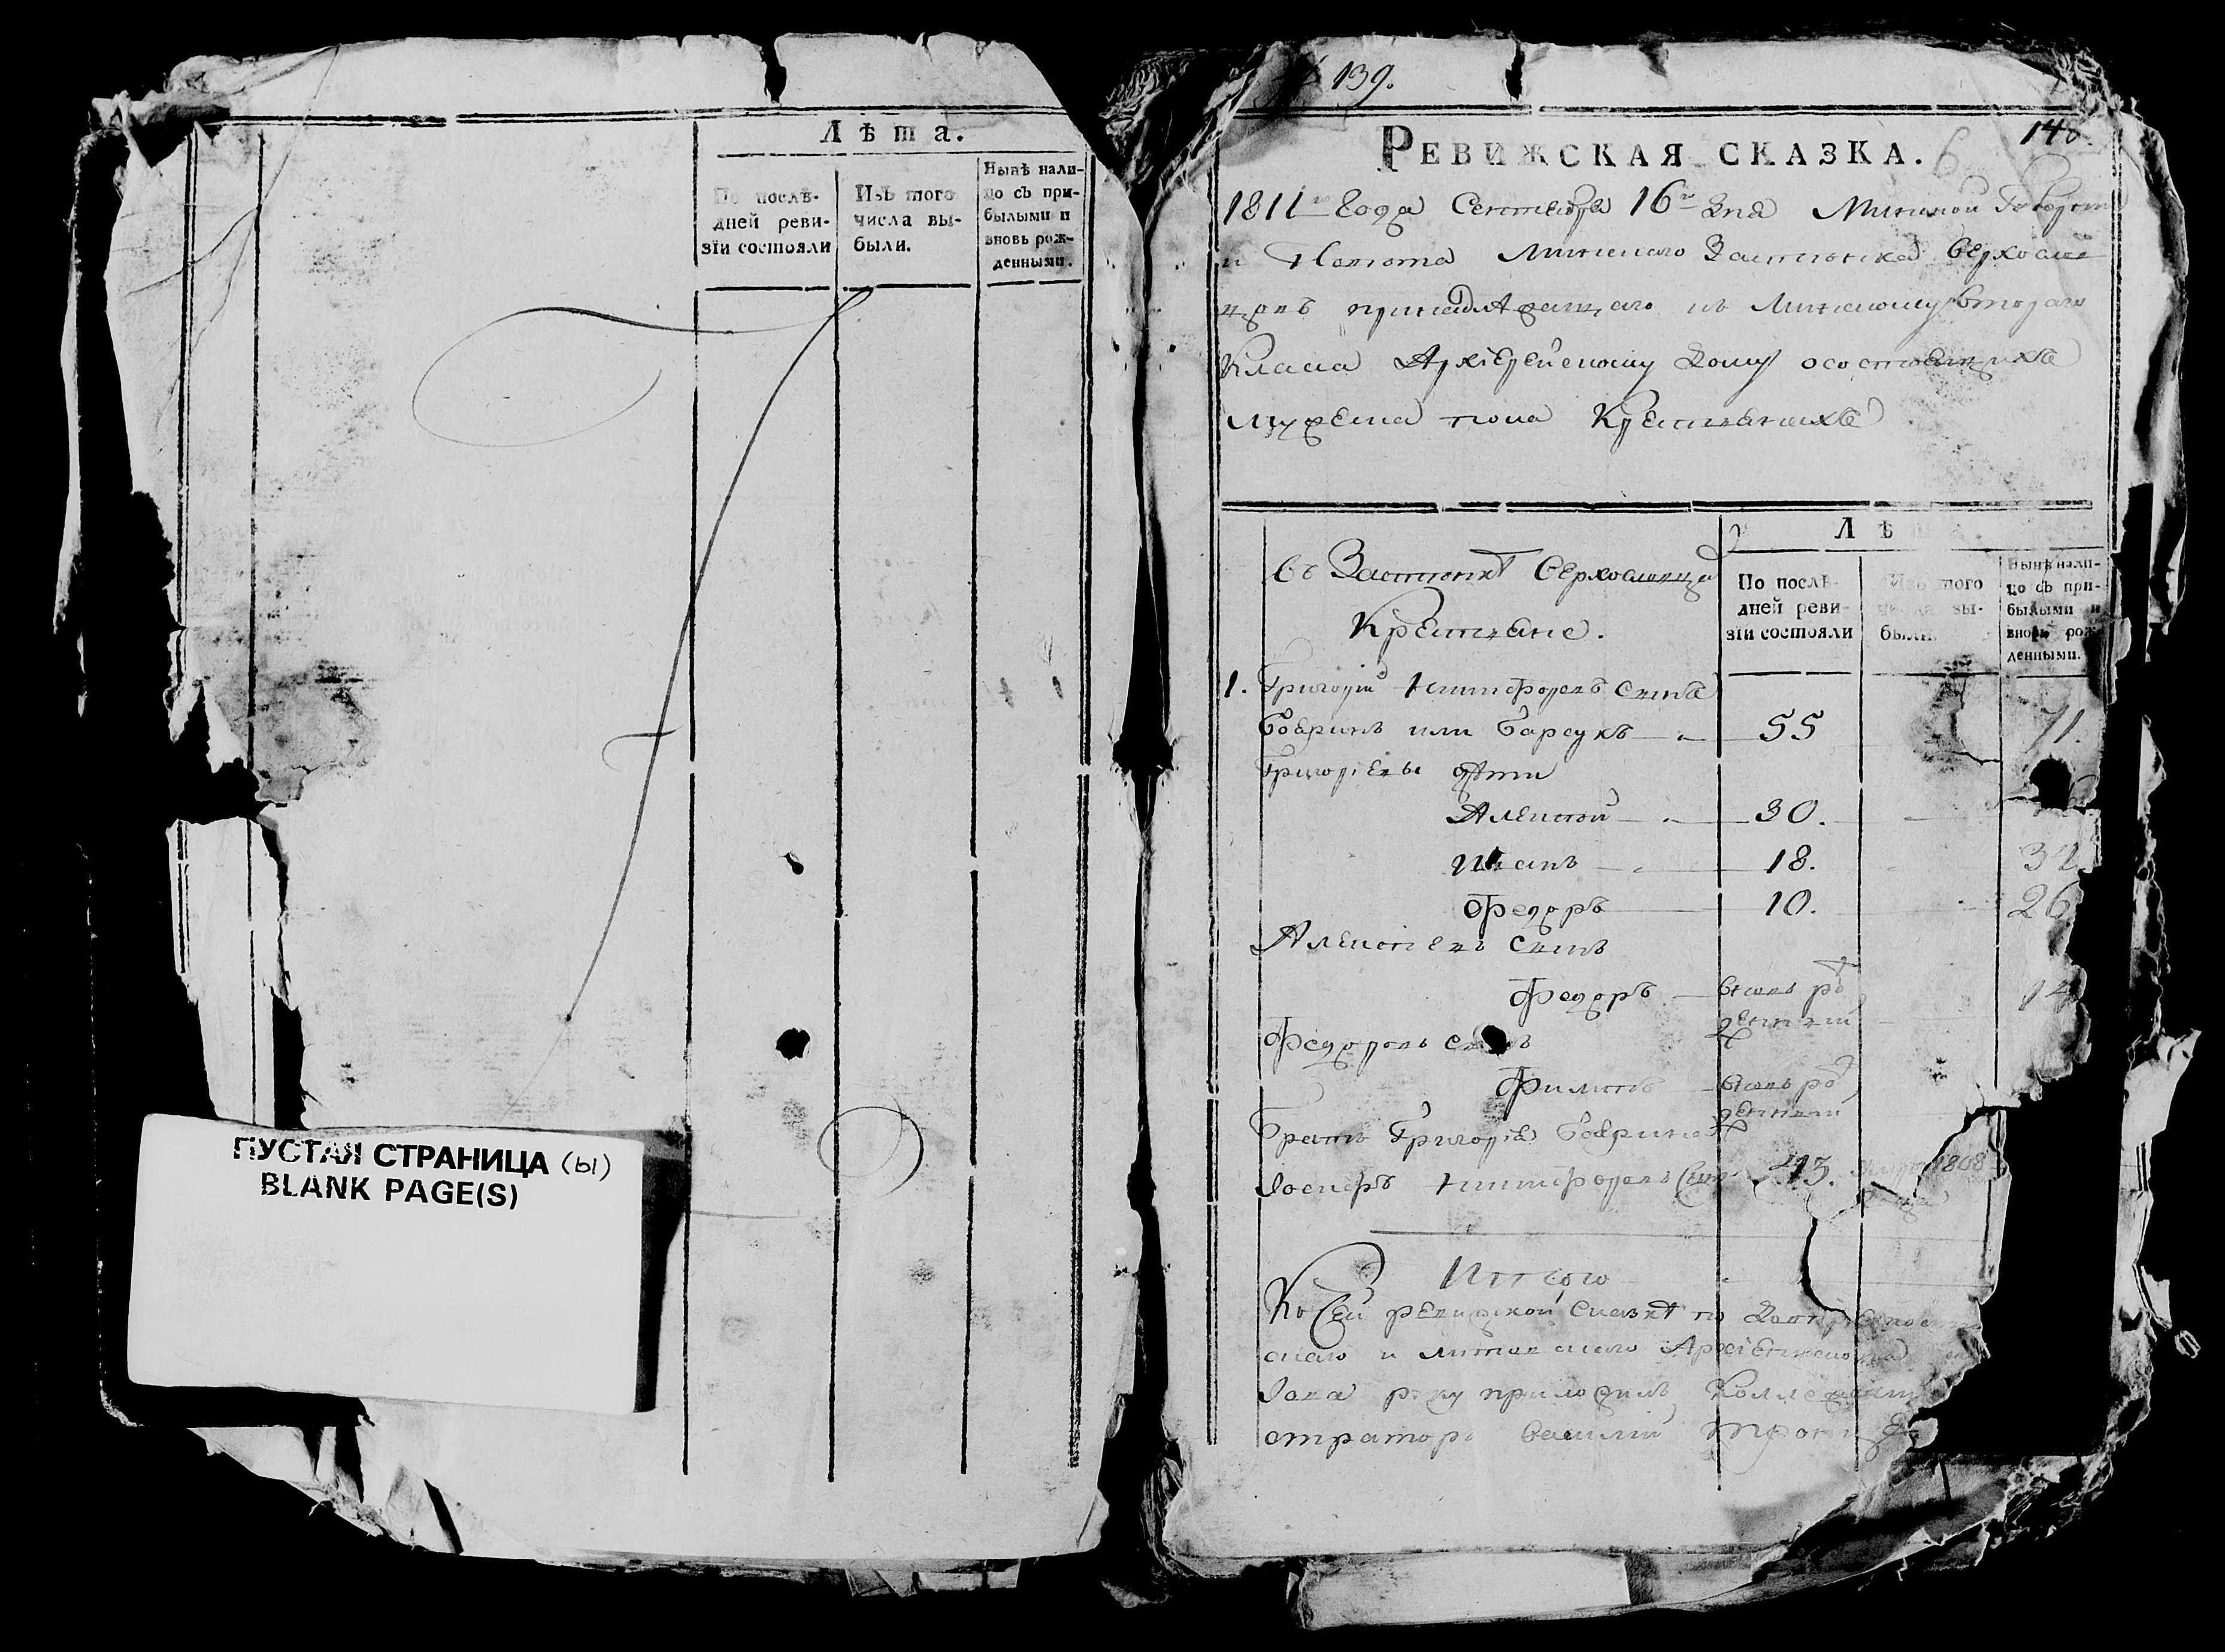 Лѣта.
По послѣ-
дней реви-
зіи состояли
Изъ того
числа вы-
были.
Нынѣ нали-
цо съ при-
былыми и
вновь рож-
денными.
ПУСТАЯ СТРАНИЦА (ы)
BLANK PAGE(S)
139.
140.
РЕВИЖСКАЯ СКАЗКА. 6
1811го Года Сентября 16го Дня Минской Губерніи
и Повѣта Минскаго Застѣнка
принадлежащаго къ Минскому второго
Класса Архіерейскому Дому о состоящихъ
мужеска пола Крестьянахъ
Лѣ
Въ Застѣнкѣ
Крестьяне.
По послѣ-
дней реви-
зіи состояли
Изъ того
числа вы-
были.
Нынѣ нали-
цо съ при-
былыми и
вновь рож-
денными.
1. Григорій Никифоровъ Сынъ
Бобрикъ или Барсукъ 55 71.
Григорьевы дѣти
Алексѣй 30.
Иванъ 18. 32
Федоръ 10. 26
Алексѣевъ Сынъ
Федоръ вновь рож
денный
Федоровъ Сынъ
Филипъ вновь рож
денный
Братъ Григорія
Іосифъ Никифоровъ Сынъ 45. 1808
Итого
Къ Сей ревижской Сказкѣ по
скаго и Литовскаго Архіепископа
Іова руку приложилъ
стратор Василій